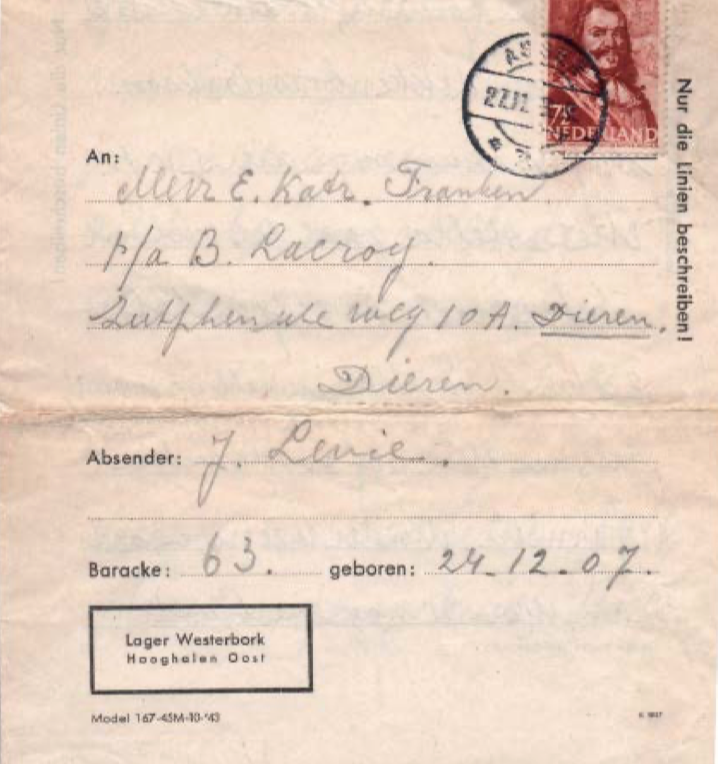 7½
NEDERLAND
27.12
Nur die Linien beschreiben!
An: Mevr E. Katr. Franken
p/a B. Lacroy.
Zutphensche weg 10 A. Dieren.
Dieren.
Absender: J. Levie.
Baracke: 63. geboren: 24-12-07.
Lager Westerbork
Hooghalen Oost
Model 167-45M-10-'43